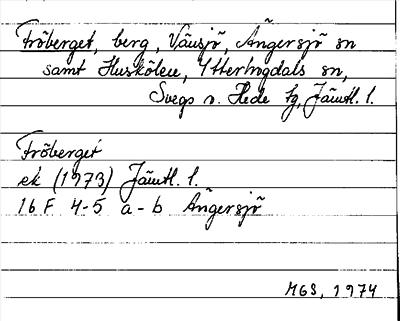 Fröberget, berg, Vänsjö, Ängersjö sn
samt Huskölen, Ytterhogdals sn,
Svegs o. Hede tg, Jämtl. l.
Fröberget
ek (1973) Jämtl. l.
16 F 4-5 a-b Ängersjö
MGS, 1974